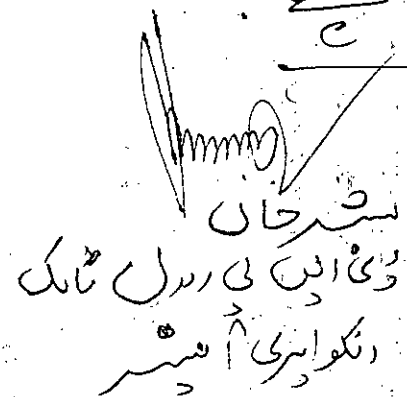 بشیر خان
ڈی ایس پی رورل ٹانک
انکوائری آفیسر